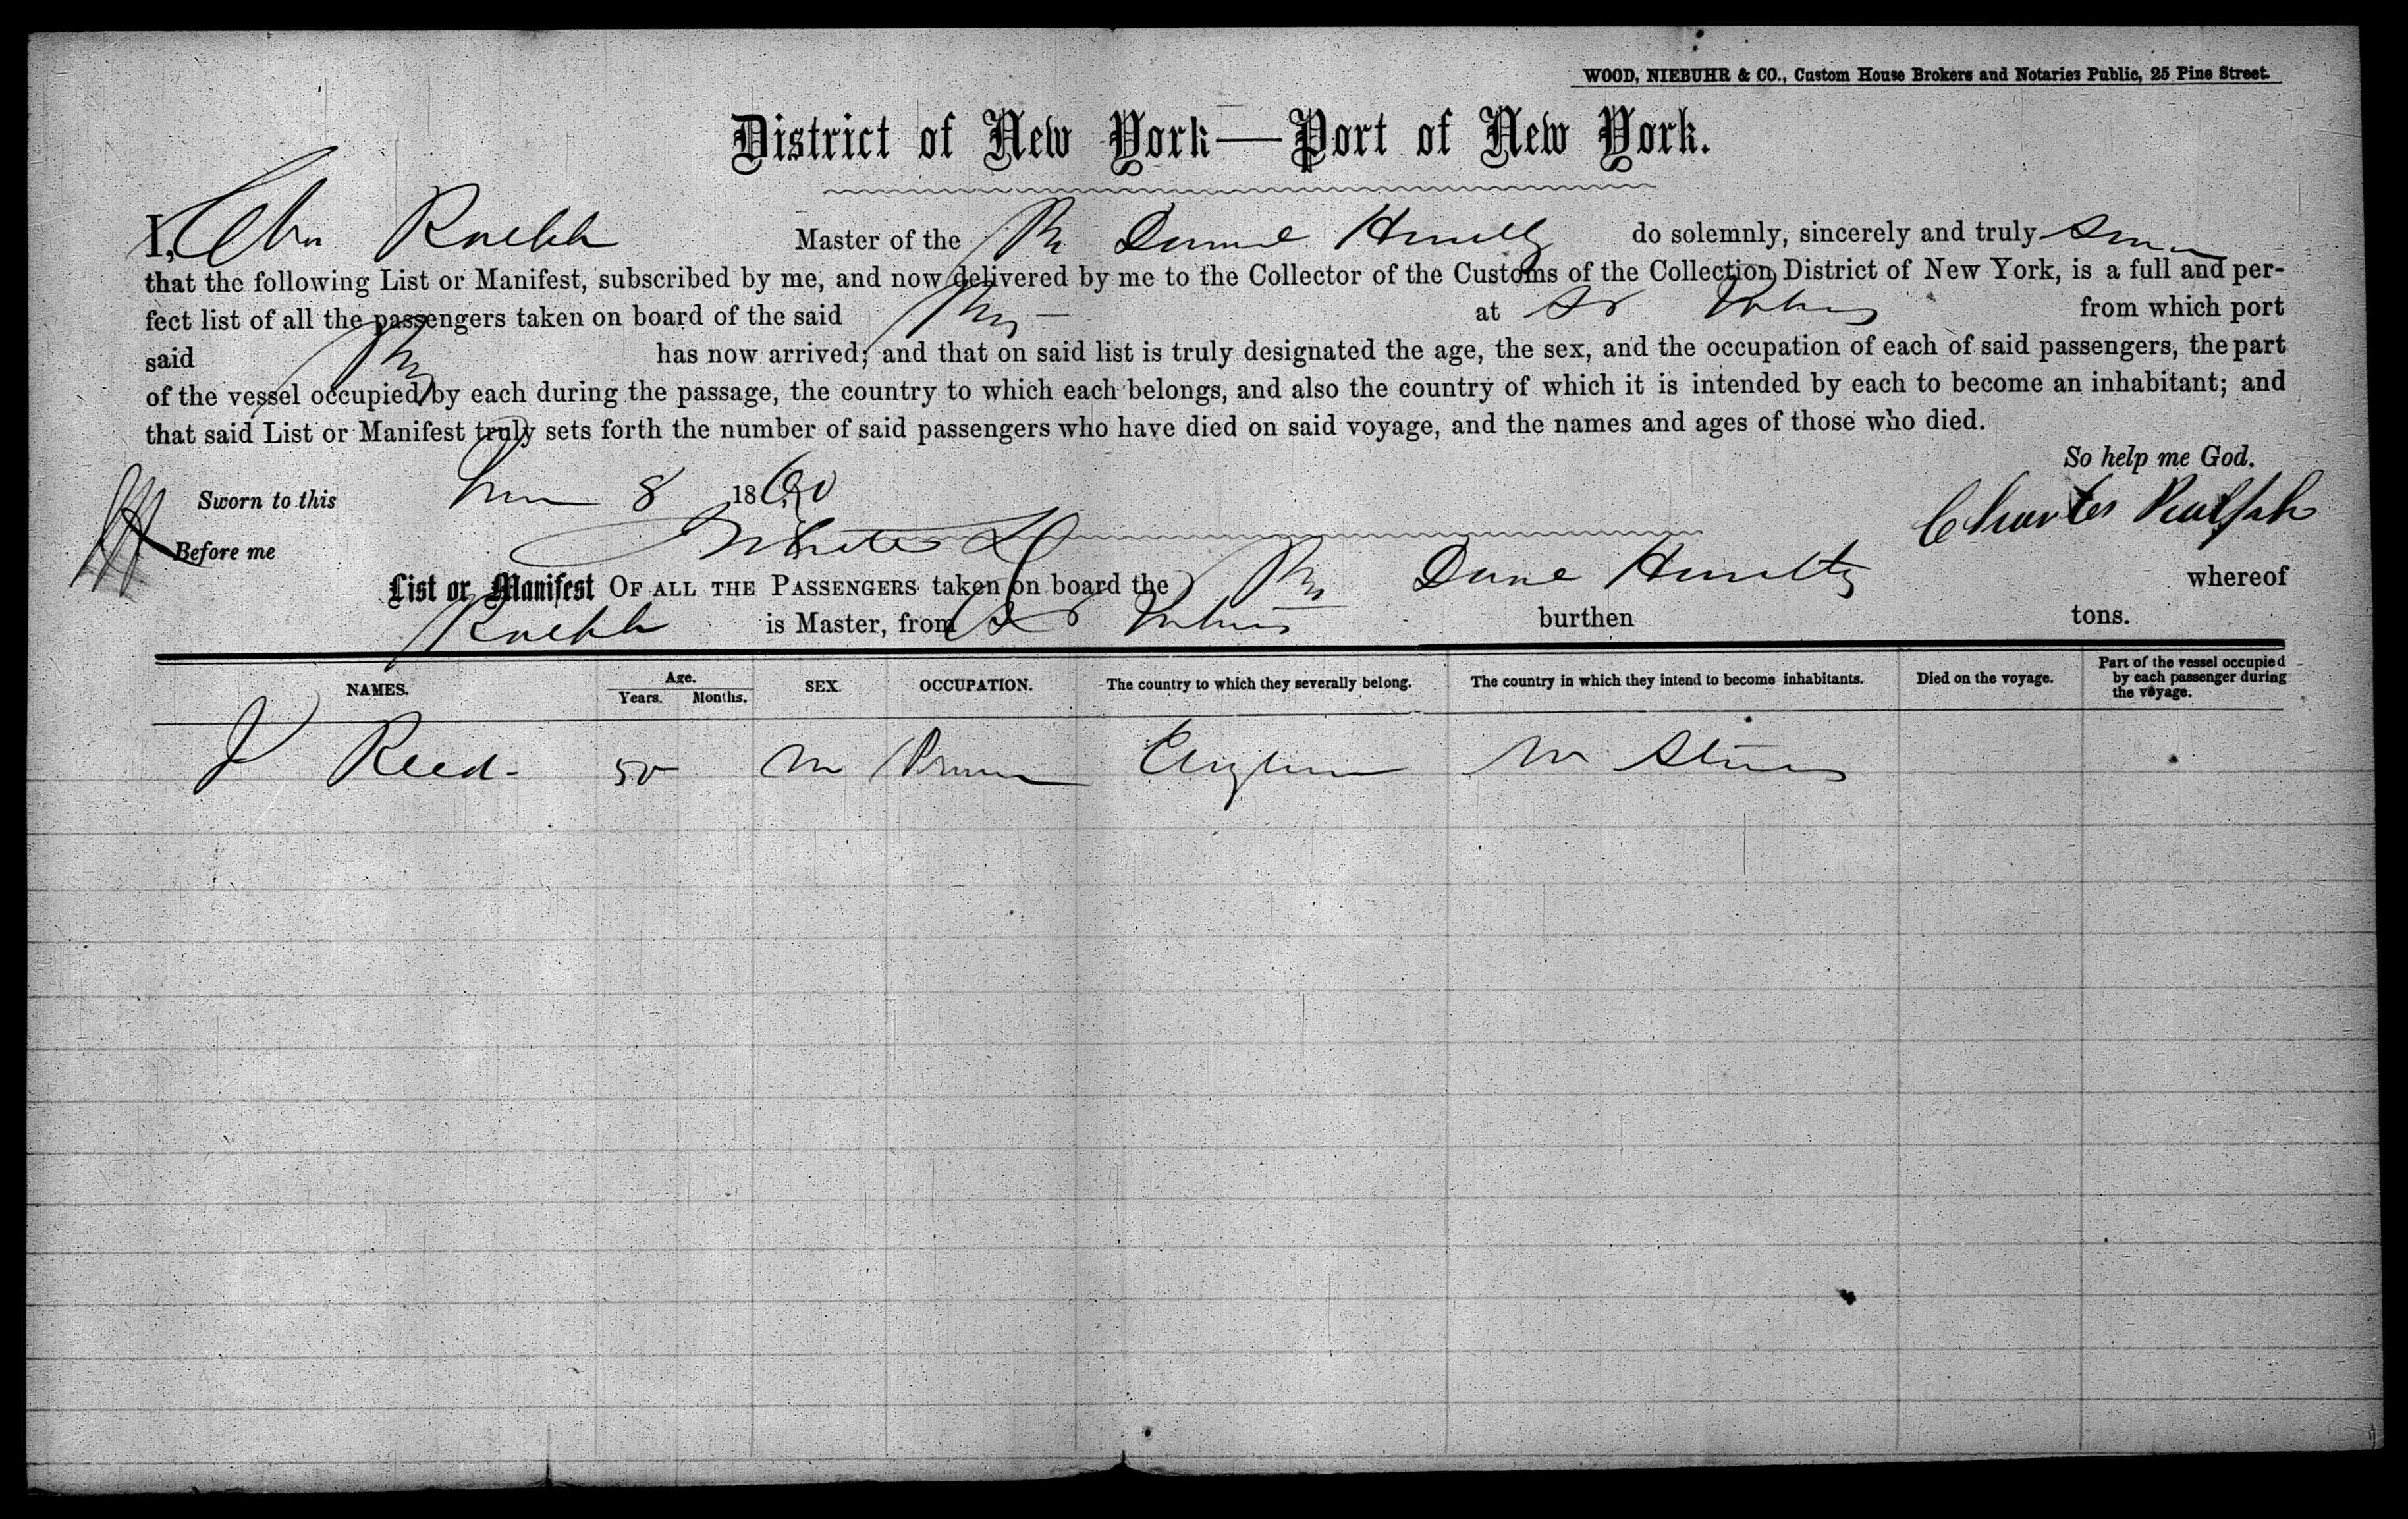 WOOD, NIEBUHR & CO., Custom House Brokers and Notaries Public, 25 Pine Street.
District of New York—Port of New York.
I, Master of the do solemnly, sincerely and truly
that the following List or Manifest, subscribed by me, and now delivered by me to the Collector of the Customs of the Collection District of New York, is a full and per-
fect list of all the passengers taken on board of the said at from which port
said has now arrived; and that on said list is truly designated the age, the sex, and the occupation of each of said passengers, the part
of the vessel occupied by each during the passage, the country to which each belongs, and also the country of which it is intended by each to become an inhabitant; and
that said List or Manifest truly sets forth the number of said passengers who have died on said voyage, and the names and ages of those who died.
So help me God.
Sworn to this 8 1860
Charles Ralph
Before me
List or Manifest OF ALL THE PASSENGERS taken on board the whereof
is Master, from burthen tons.
NAMES. Age. Years. Months. SEX. OCCUPATION. The country to which they severally belong. The country in which they intend to become inhabitants. Died on the voyage. Part of the vessel occupied by each passenger during the voyage.
J Reed 50 M